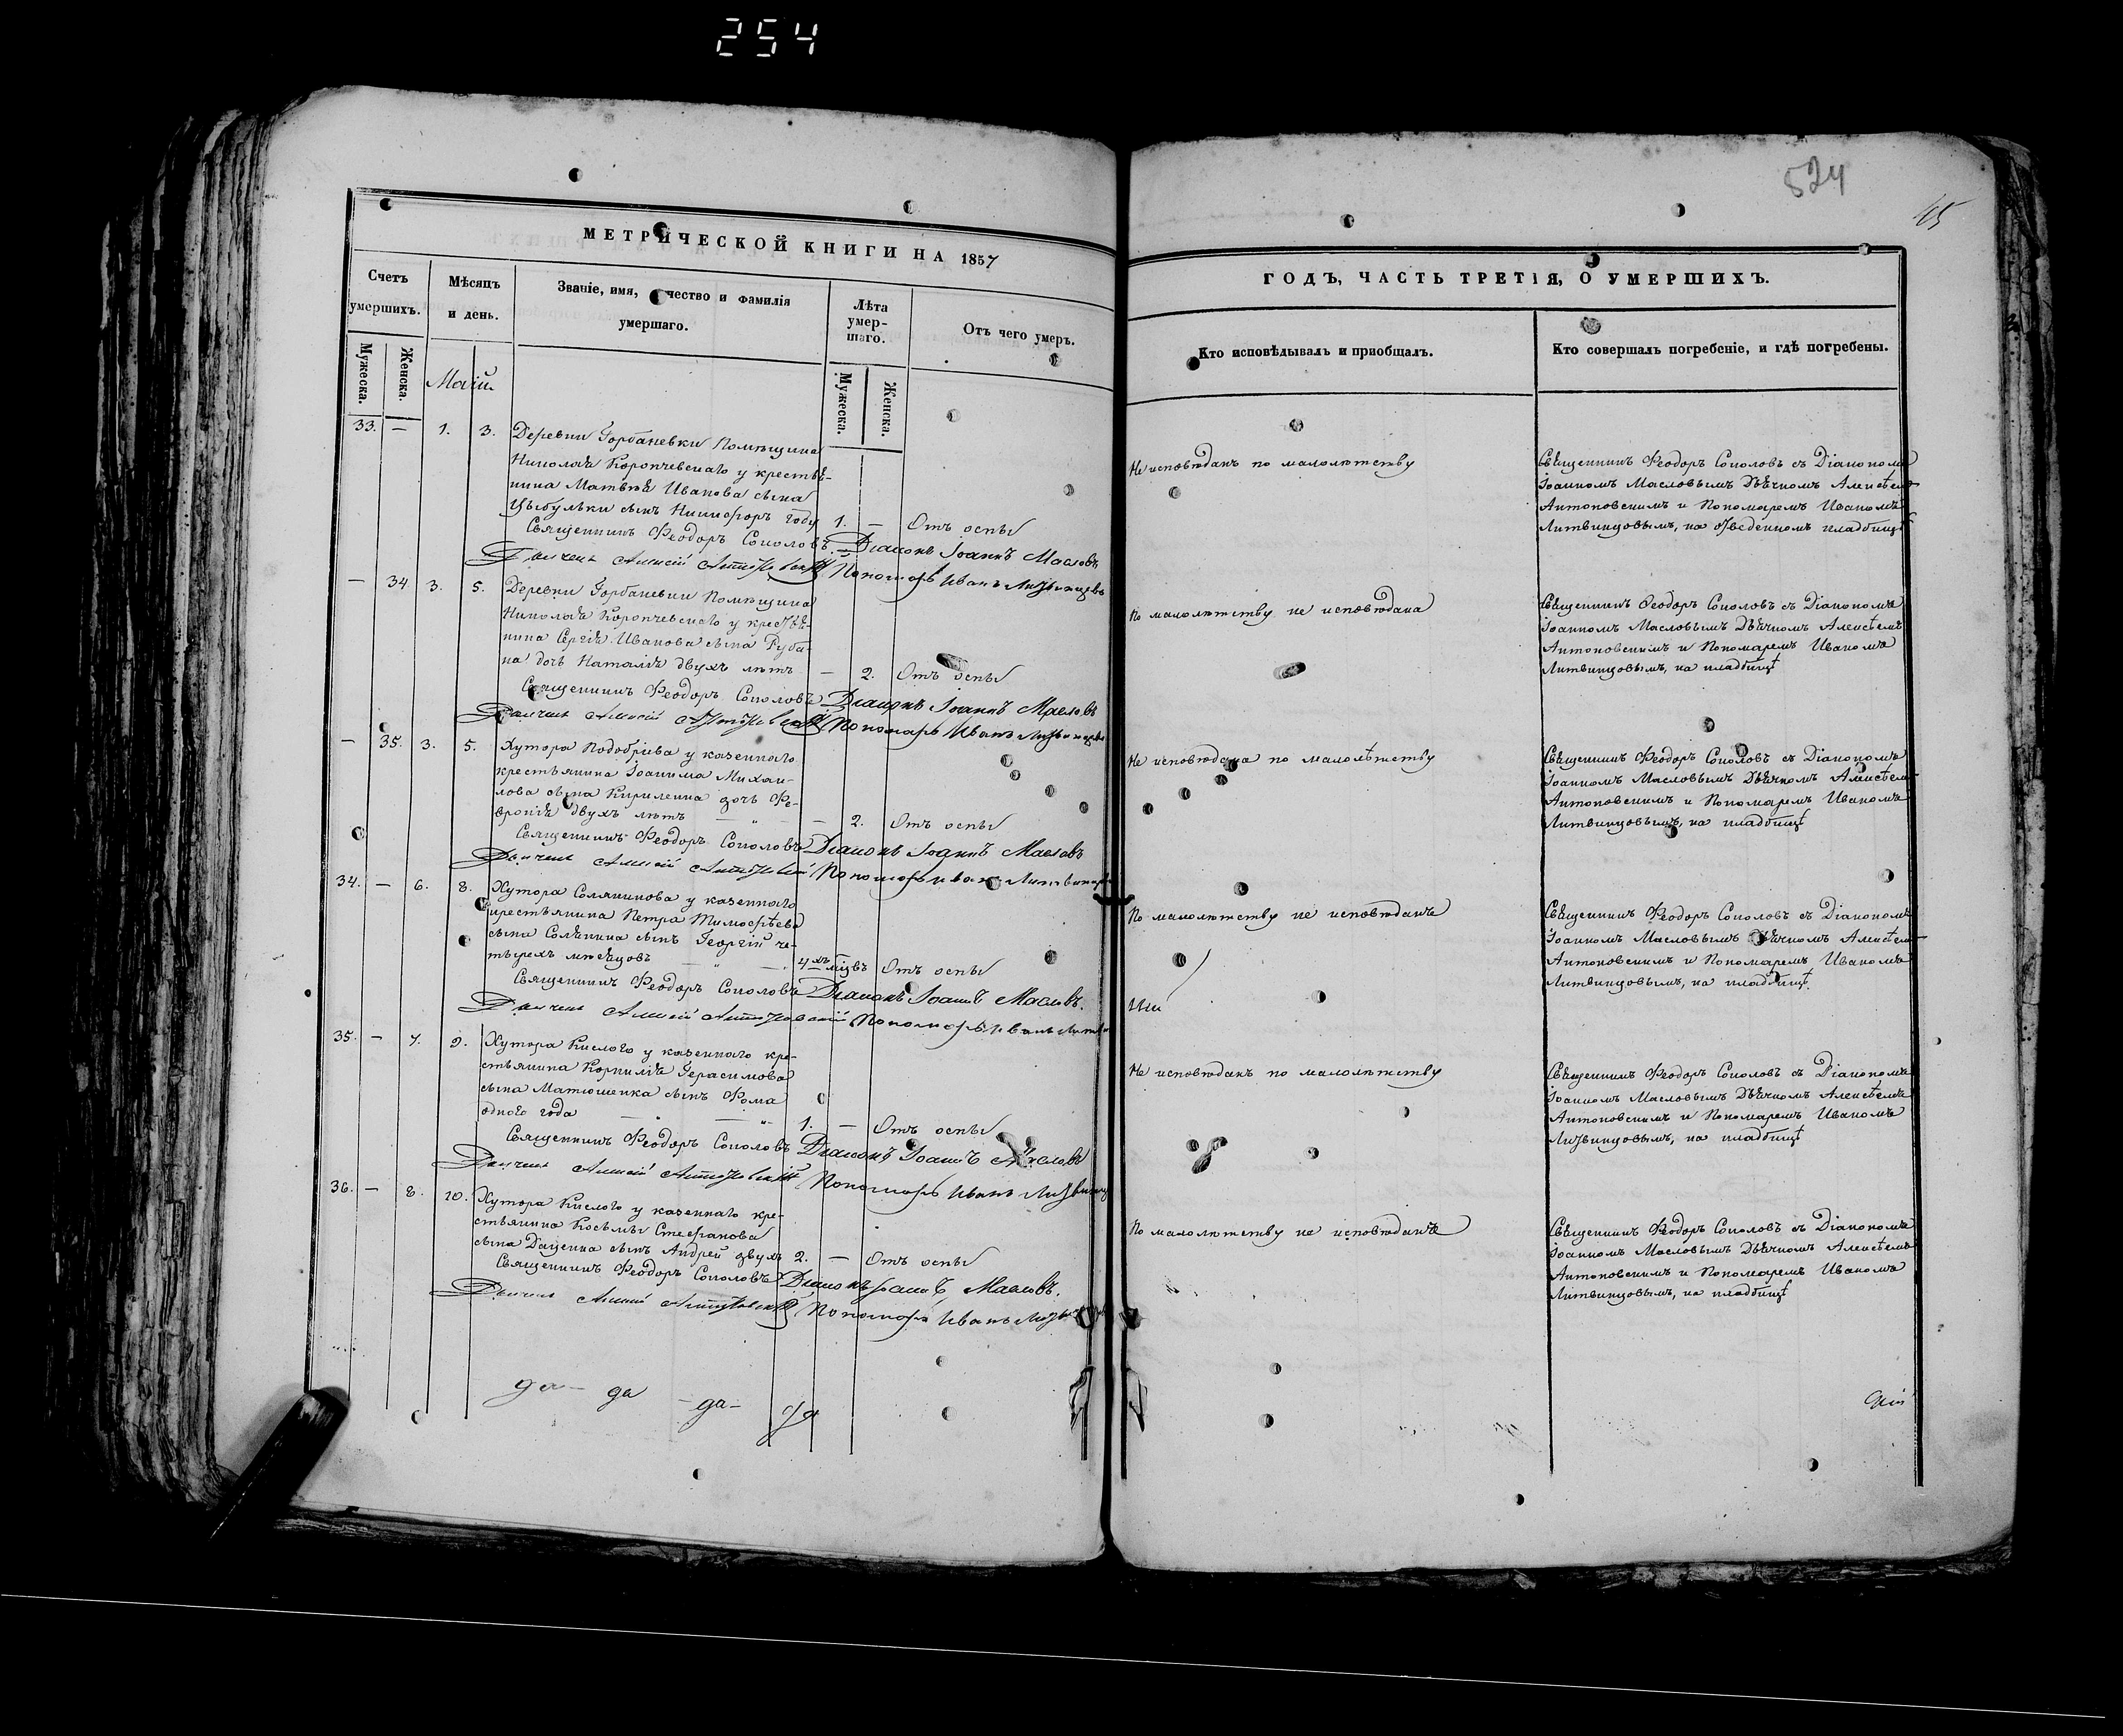 254
524
45
МЕТРИЧЕСКОЙ КНИГИ НА 1857
Счетъ умершихъ.
Мужеска.
Женска.
Мѣсяцъ и день.
Званіе, имя, отчество и фамилія умершаго.
Лѣта умер-
шаго.
Мужеска.
Женска.
Отъ чего умеръ.
Маій
33. — 1. 3. Деревни Горбаневки Помѣщика
Николая Коропчевскаго у крестья-
нина Матвѣя Иванова сына
Цыбульки сынъ Никифоръ году 1. — Отъ оспы
Священникъ Феодоръ Соколовъ. Діаконъ Іоаннъ Масловъ
Дьячекъ Алексій Антоновскій Пономарь Иванъ Литвинцовъ
— 34. 3. 5. Деревни Горбаневки Помѣщика
Николая Коропчевскаго у крестья-
нина Сергія Иванова сына Руба-
на дочь Наталія двухъ лѣтъ — 2. Отъ оспы
Священникъ Феодоръ Соколовъ Діаконъ Іоаннъ Масловъ
Дьячекъ Алексій Антоновскій Пономарь Иванъ Литвинцовъ
— 35. 3. 5. Хутора Подобріева у казеннаго
крестьянина Іоакима Михаи-
лова сына Кириленка дочь Фе-
вронія двухъ лѣтъ — „ — — 2. Отъ оспы
Священникъ Феодоръ Соколовъ Діаконъ Іоаннъ Масловъ
Дьячекъ Алексій Антоновскій Пономарь Иванъ Литвинцовъ
34. — 6. 8. Хутора Соляникова у казеннаго
крестьянина Петра Тимофѣева
сына Соляника сынъ Георгій че-
тырехъ мѣсяцовъ — „ — 4хъ мѣсвъ Отъ оспы
Священникъ Феодоръ Соколовъ Діаконъ Іоаннъ Масловъ.
Дьячекъ Алексій Антоновскій Пономарь Иванъ
35. — 7. 9. Хутора Кислого у казеннаго кре-
стьянина Корнилія Герасимова
сына Матюшенка сынъ Фома
одного года — „ — 1. — Отъ оспы
Священникъ Феодоръ Соколовъ Діаконъ Іоаннъ Масловъ
Дьячекъ Алексій Антоновскій Пономарь Иванъ
36. — 8. 10. Хутора Кислого у казеннаго кре-
стьянина Косьмы Стефанова
сына Даценка сынъ Андрей двухъ 2. — Отъ оспы
Священникъ Феодоръ Соколовъ Діаконъ Іоаннъ Масловъ.
Дьячекъ Алексій Антоновскій Пономарь Иванъ
да — да — да — да
ГОДЪ, ЧАСТЬ ТРЕТІЯ, О УМЕРШИХЪ.
Кто исповѣдывалъ и приобщалъ.
Кто совершалъ погребеніе, и гдѣ погребены.
Не исповѣданъ по малолѣтству
Священникъ Феодоръ Соколовъ съ Діакономъ
Іоанномъ Масловымъ Дьячкомъ Алексѣемъ
Антоновскимъ и Пономаремъ Иваномъ
Литвинцовымъ, на отведенномъ кладбищѣ
По малолѣтству не исповѣдана
Священникъ Феодоръ Соколовъ съ Діакономъ
Іоанномъ Масловымъ Дьячкомъ Алексѣемъ
Антоновскимъ и Пономаремъ Иваномъ
Литвинцовымъ, на кладбищѣ
Не исповѣдана по малолѣтству
Священникъ Феодоръ Соколовъ съ Діакономъ
Іоанномъ Масловымъ Дьячкомъ Алексѣемъ
Антоновскимъ и Пономаремъ Иваномъ
Литвинцовымъ, на кладбищѣ
По малолѣтству не исповѣданъ
Священникъ Феодоръ Соколовъ съ Діакономъ
Іоанномъ Масловымъ Дьячкомъ Алексѣемъ
Антоновскимъ и Пономаремъ Иваномъ
Литвинцовымъ, на кладбищѣ.
Не исповѣданъ по малолѣтству
Священникъ Феодоръ Соколовъ съ Діакономъ
Іоанномъ Масловымъ Дьячкомъ Алексѣемъ
Антоновскимъ и Пономаремъ Иваномъ
Литвинцовымъ, на кладбищѣ
По малолѣтству не исповѣданъ
Священникъ Феодоръ Соколовъ съ Діакономъ
Іоанномъ Масловымъ Дьячкомъ Алексѣемъ
Антоновскимъ и Пономаремъ Иваномъ
Литвинцовымъ, на кладбищѣ